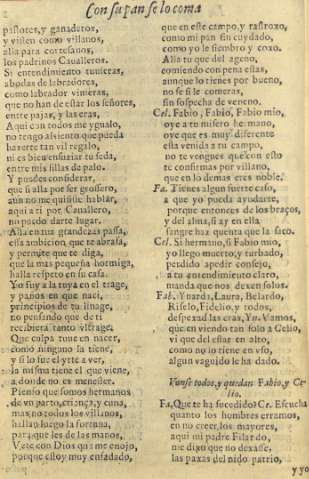 Con su pan se lo coma
pastores, y ganaderos,
y visten como villanos,
alla para cortesanos,
los padrinos Caualleros.
Si entendimiento tuuieras,
a bodas de labradores,
como labrador vinieras,
que no han de estar los señores,
entre pajas, y las eras,
Aqui con todos me ygualo,
no tengo assiento que pueda
hazerte tan vil regalo,
ni es bien ensuziar tu seda,
entre mis sillas de palo.
Y puedes considerar,
que si alla por ser grossero,
aun no me quisiste hablar,
aqui a ti por Cauallero,
no puedo darte lugar.
Alla en tus grandezas passa,
essa ambicion, que te abrasa,
y permite que te diga,
que la mas pequeña hormiga,
halla respeto en su casa.
Yo fuy a la tuya en el trage,
y paños en que naci,
principios de tu linage,
no pensando que de ti
recibiera tanto vltrage.
Que culpa tuue en nacer,
como ninguno la tiene,
y si lo fue el yrte a ver,
la misma tiene el que viene,
a donde no es menester.
Pienso que somos hermanos
de vn parto, criança, y cuna,
mas no todos los villanos,
hallan luego la fortuna,
para que les de las manos,
Vete con Dios que me enojo,
porque estoy muy enfadado,
que en este campo, y rastroxo,
como mi pan sin cuydado,
como yo le siembro y coxo.
Alla tu que del ageno,
comiendo con pena estas,
aunque lo tienes por bueno,
no se si le comeras,
sin sospecha de veneno.
Cel. Fabio, Fabio, Fabio mio,
oye a tu misero hermano,
oye que es muy diferente
esta venida a tu campo,
no te vengues que con esto
te confirmas por villano,
que en lo demas eres noble.
Fa. Tienes algun fuerte caso,
a que yo pueda ayudarte,
porque entonces de los braços,
y del alma, si ay en ella
sangre haz cuenta que la saco.
Cel. Si hermano, si Fabio mio,
yo llego muerto, y turbado,
perdido a pedir consejo,
a tu entendimiento claro,
manda que nos dexen solos.
Fab. Ynarda, Laura, Belardo,
Riselo, Fidelio, y todos,
despexad las eras, Yn. Vamos,
que en viendo tan solo a Celio,
vi que del estar en alto,
como no lo tiene en vso,
algun vaguido le ha dado.
Vanse todos, y quedan Fabio, y Ce-
lio.
Fa. Que te ha sucedido? Ce. Escucha
quanto los hombres erramos,
en no creer los mayores,
aqui mi padre Filardo,
me dixo que no dexasse,
las pazas del nido patrio,
y yo